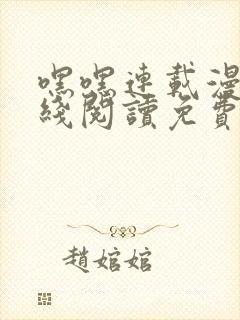 嘿嘿連載漫
綫閱讀免費
趙婠婠